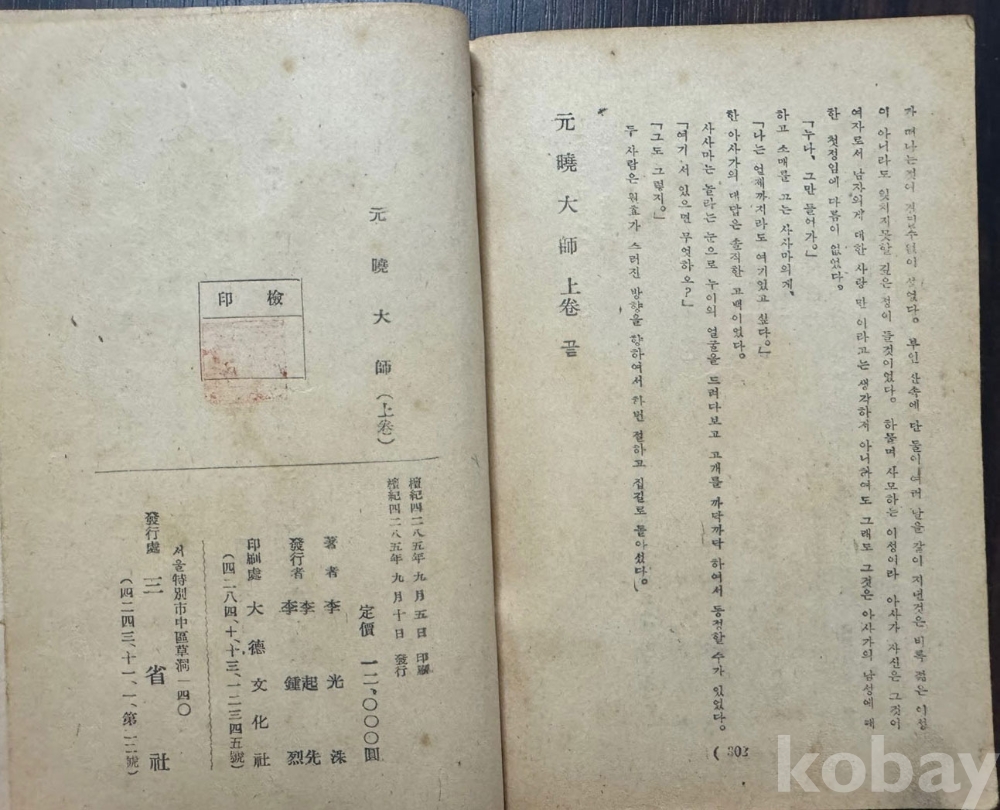 가 떠나는것이 젼딜수없이 싫었다. 부인 산속에 단 둘이 여러 날을 같이 지낸것은 비록 젊은 이성
이 아니라도 잊처지못할 깊은 정이 들것이였다. 하물며 사모하는 이성이랴 아사가 자신은 그것이
여자로서 남자의게 대한 사랑 만 이라고는 생각하지 아니하여도 그래도 그것은 아사가의 남성에 대
한 첫정임에 다름이 없었다.
「누나, 그만 들어가.」
하고 소매를 끄는 사사마의게,
「나는 언제까지라도 여기있고 싶다.」
한 아사가의 대답은 솔직한 고백이였다.
사사마는 놀라는 눈으로 누이의 얼굴을 드려다보고 고개를 까딱까딱 하여서 동정할 수가 있었다.
「여기 서 있으면 무엇하오?」
「그도 그렇지.」
두 사람은 원효가 스러진 방향을 향하여서 하번 절하고 집길로 돌아섰다.
元曉大師 上卷 끝
( 303
元曉大師 (上卷)
檢印
檀紀四二八五年九月五日 印刷
檀紀四二八五年九月十日 發行
定價 一二,〇〇〇圓
著者 李光洙
發行者 李起先
李鍾烈
印刷處 大德文化社
(四二八四、十、十三、一二三四五號)
서울特別市中區草洞一四〇
發行處 三省社
(四二四三、十一、一、第二二號)
kobay